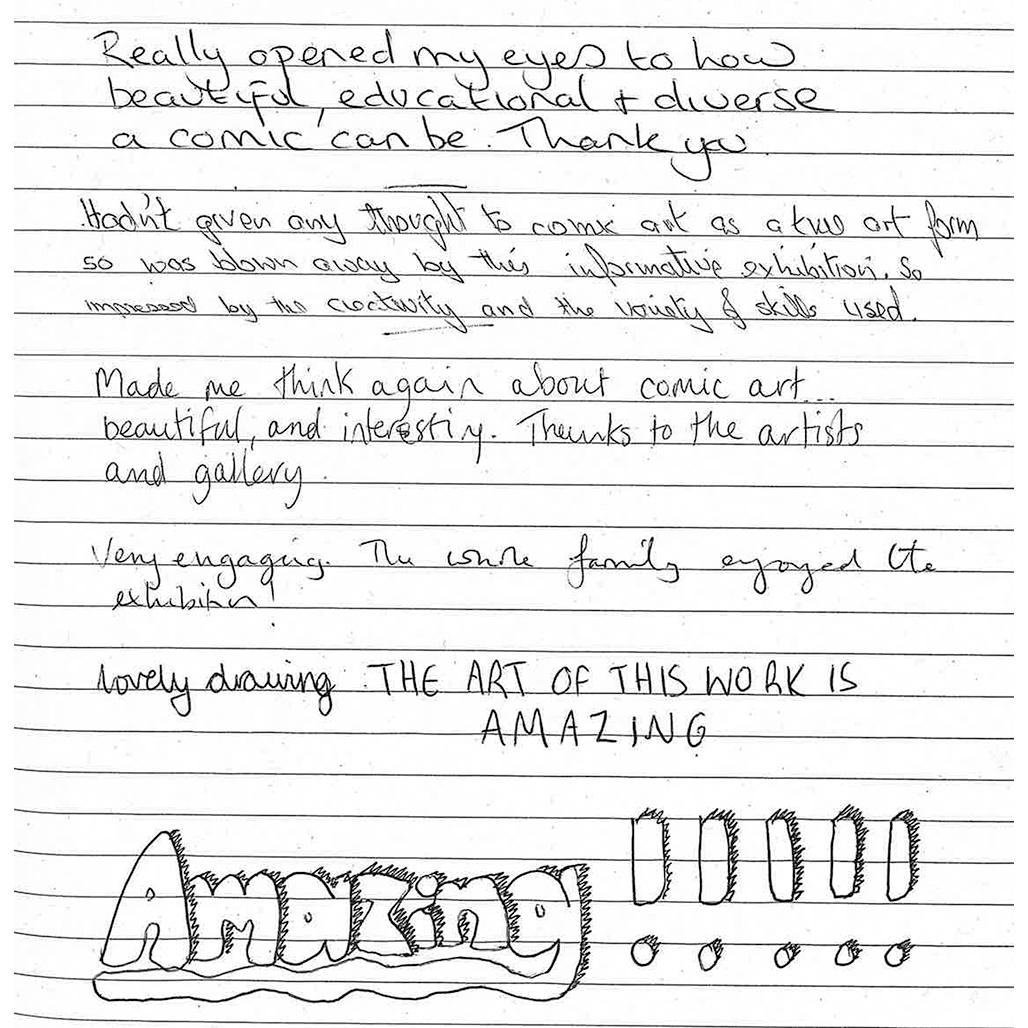 Really opened my eyes to how
beautiful, educational + diverse
a comic can be. Thank you
Hadn't given any thought to comic art as a true art form
so was blown away by this informative exhibition. So
impressed by the creativity and the variety of skills used.
Made me think again about comic art...
beautiful, and interesting. Thanks to the artists
and gallery.
Very engaging. The whole family enjoyed the
exhibition!
lovely drawing THE ART OF THIS WORK IS
AMAZING
Amazing !!!!!